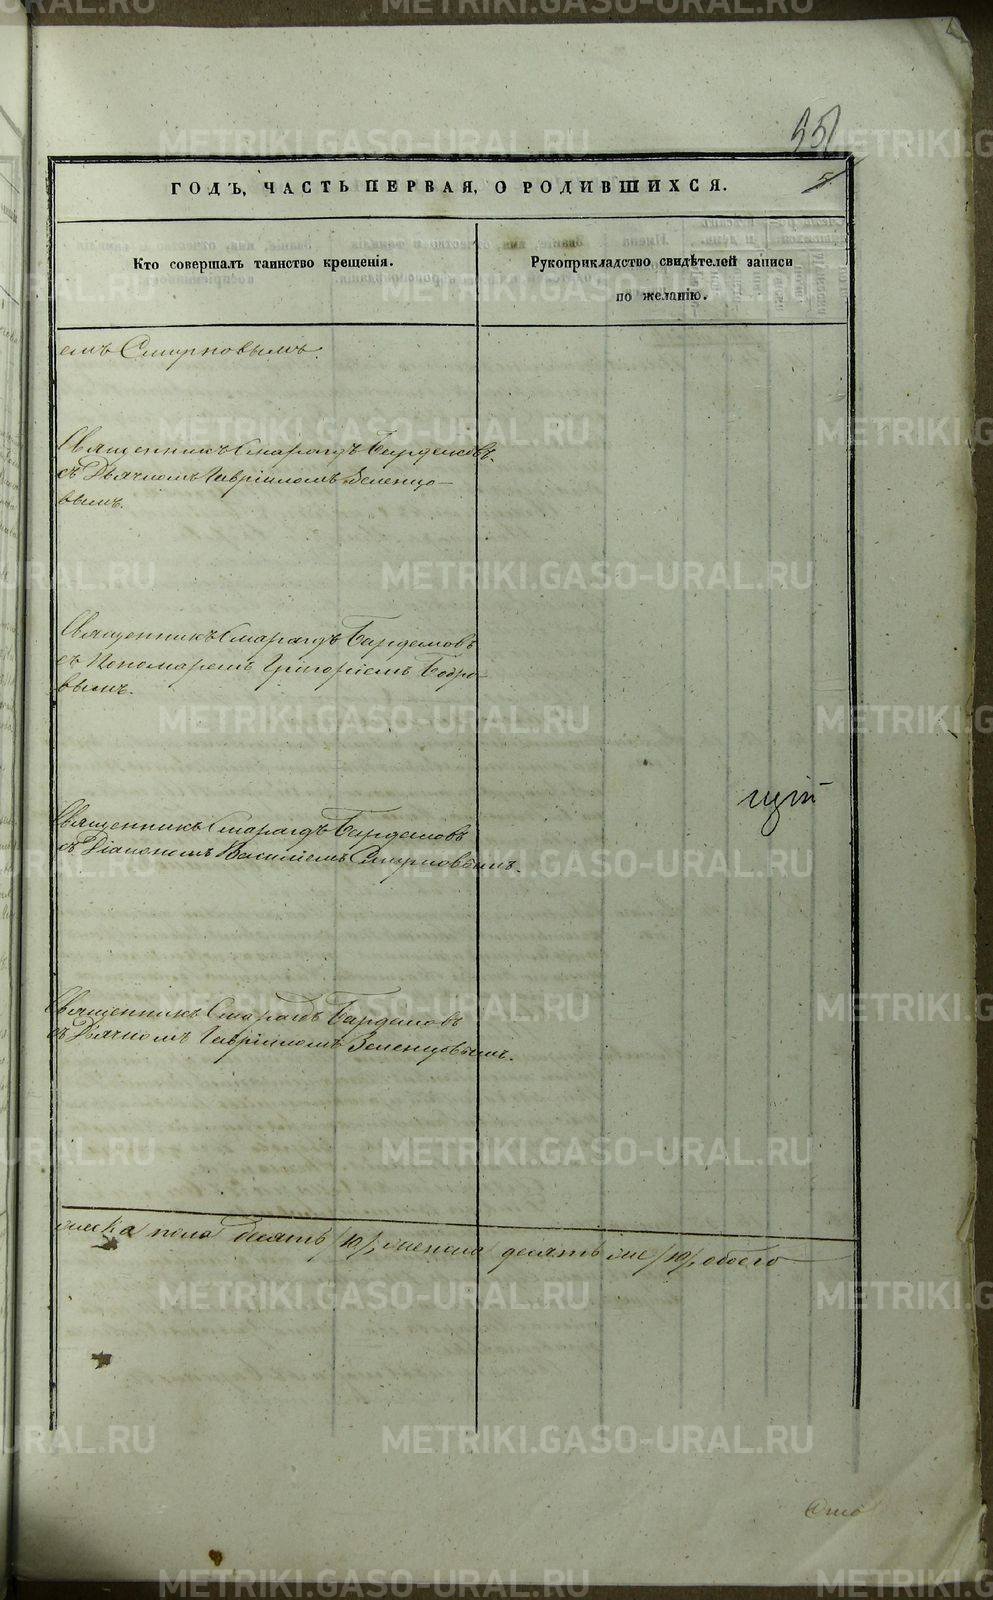 551
5.
ГОДЪ, ЧАСТЬ ПЕРВАЯ, О РОДИВШИХСЯ.
Кто совершалъ таинство крещенія.
Рукоприкладство свидѣтелей записи
по желанію.
емъ Смирновымъ.
Священникъ Смарагдъ Бирдемовъ
съ Дьячкомъ Гавріиломъ Зеленцо-
вымъ.
Священникъ Смарагдъ Бирдемовъ
съ Пономаремъ Григоріемъ Бобро-
вымъ.
Священникъ Смарагдъ Бирдемовъ
съ Діакономъ Василіемъ Смирновымъ.
Священникъ Смарагдъ Бирдемовъ
съ Дьячкомъ Гавріиломъ Зеленцовымъ.
пола десять /10/, десять /10/, обоего
METRIKI.GASO-URAL.RU